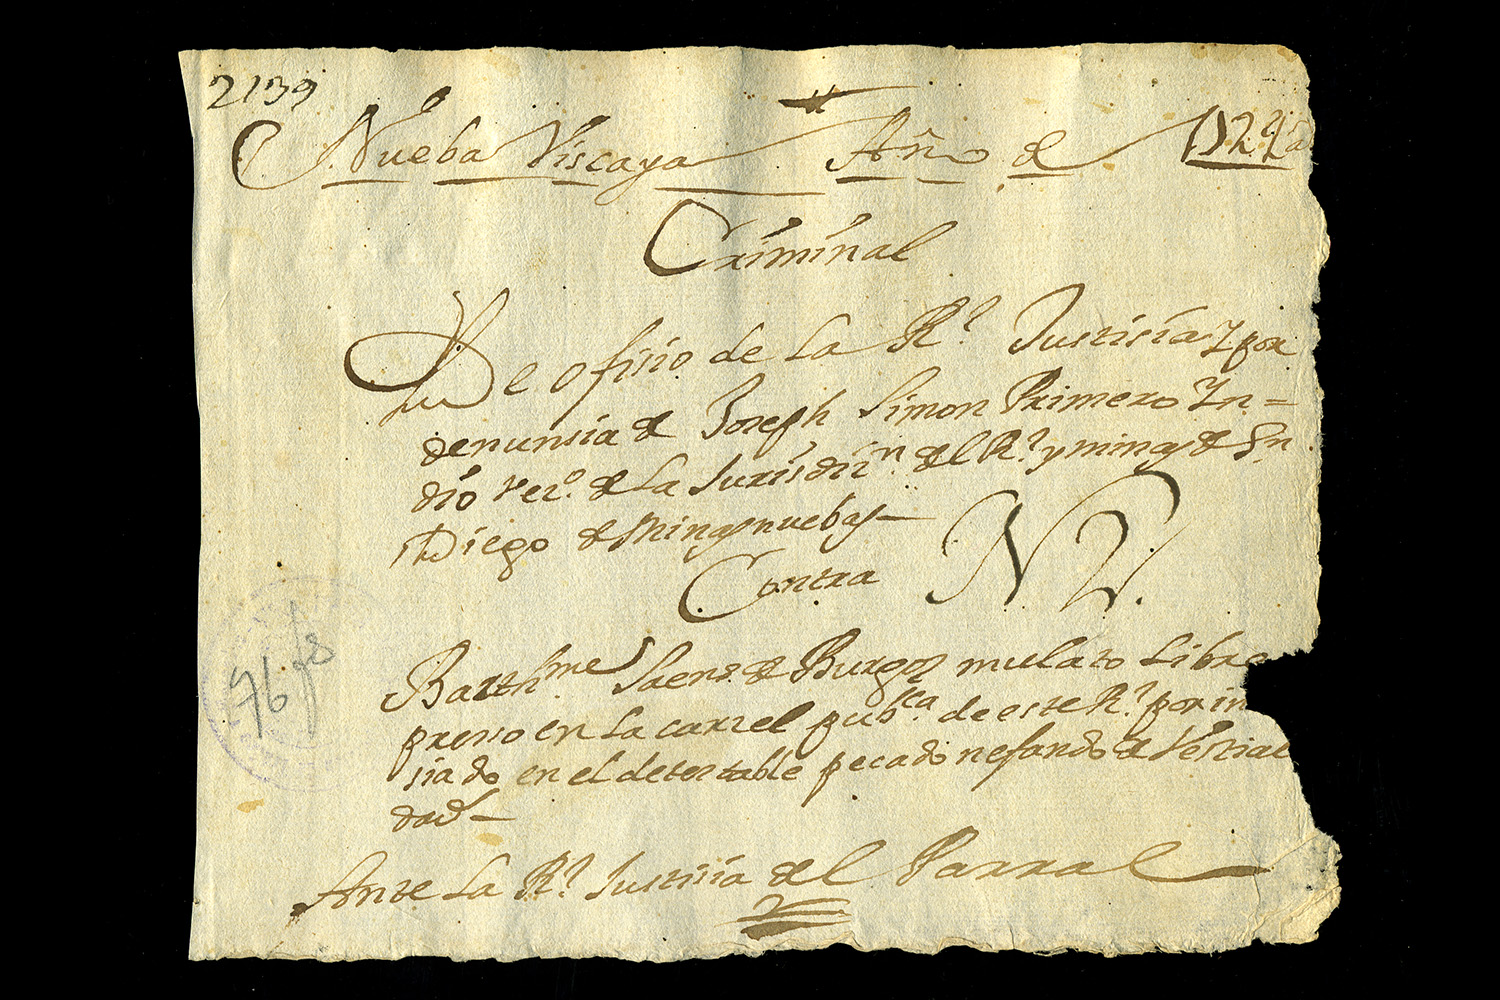 2139
Nueba Viscaya Año de 1724 a
Criminal
De ofisio de la Rl. Justisia Y por
denunsia de Joseph Simon Primero Yn=
dio vezo. de la Jurisdiin. del Rl. y minas de Sn.
Diego de Minas nuebas—
Contra
Barthme Saens de Burgos mulato Libre
preso en la carzel pubca de este Rl. por in
siado en el detestable pecado nefando de Vestiali
dad—
Ante la Rl. Justisia del Parral
968